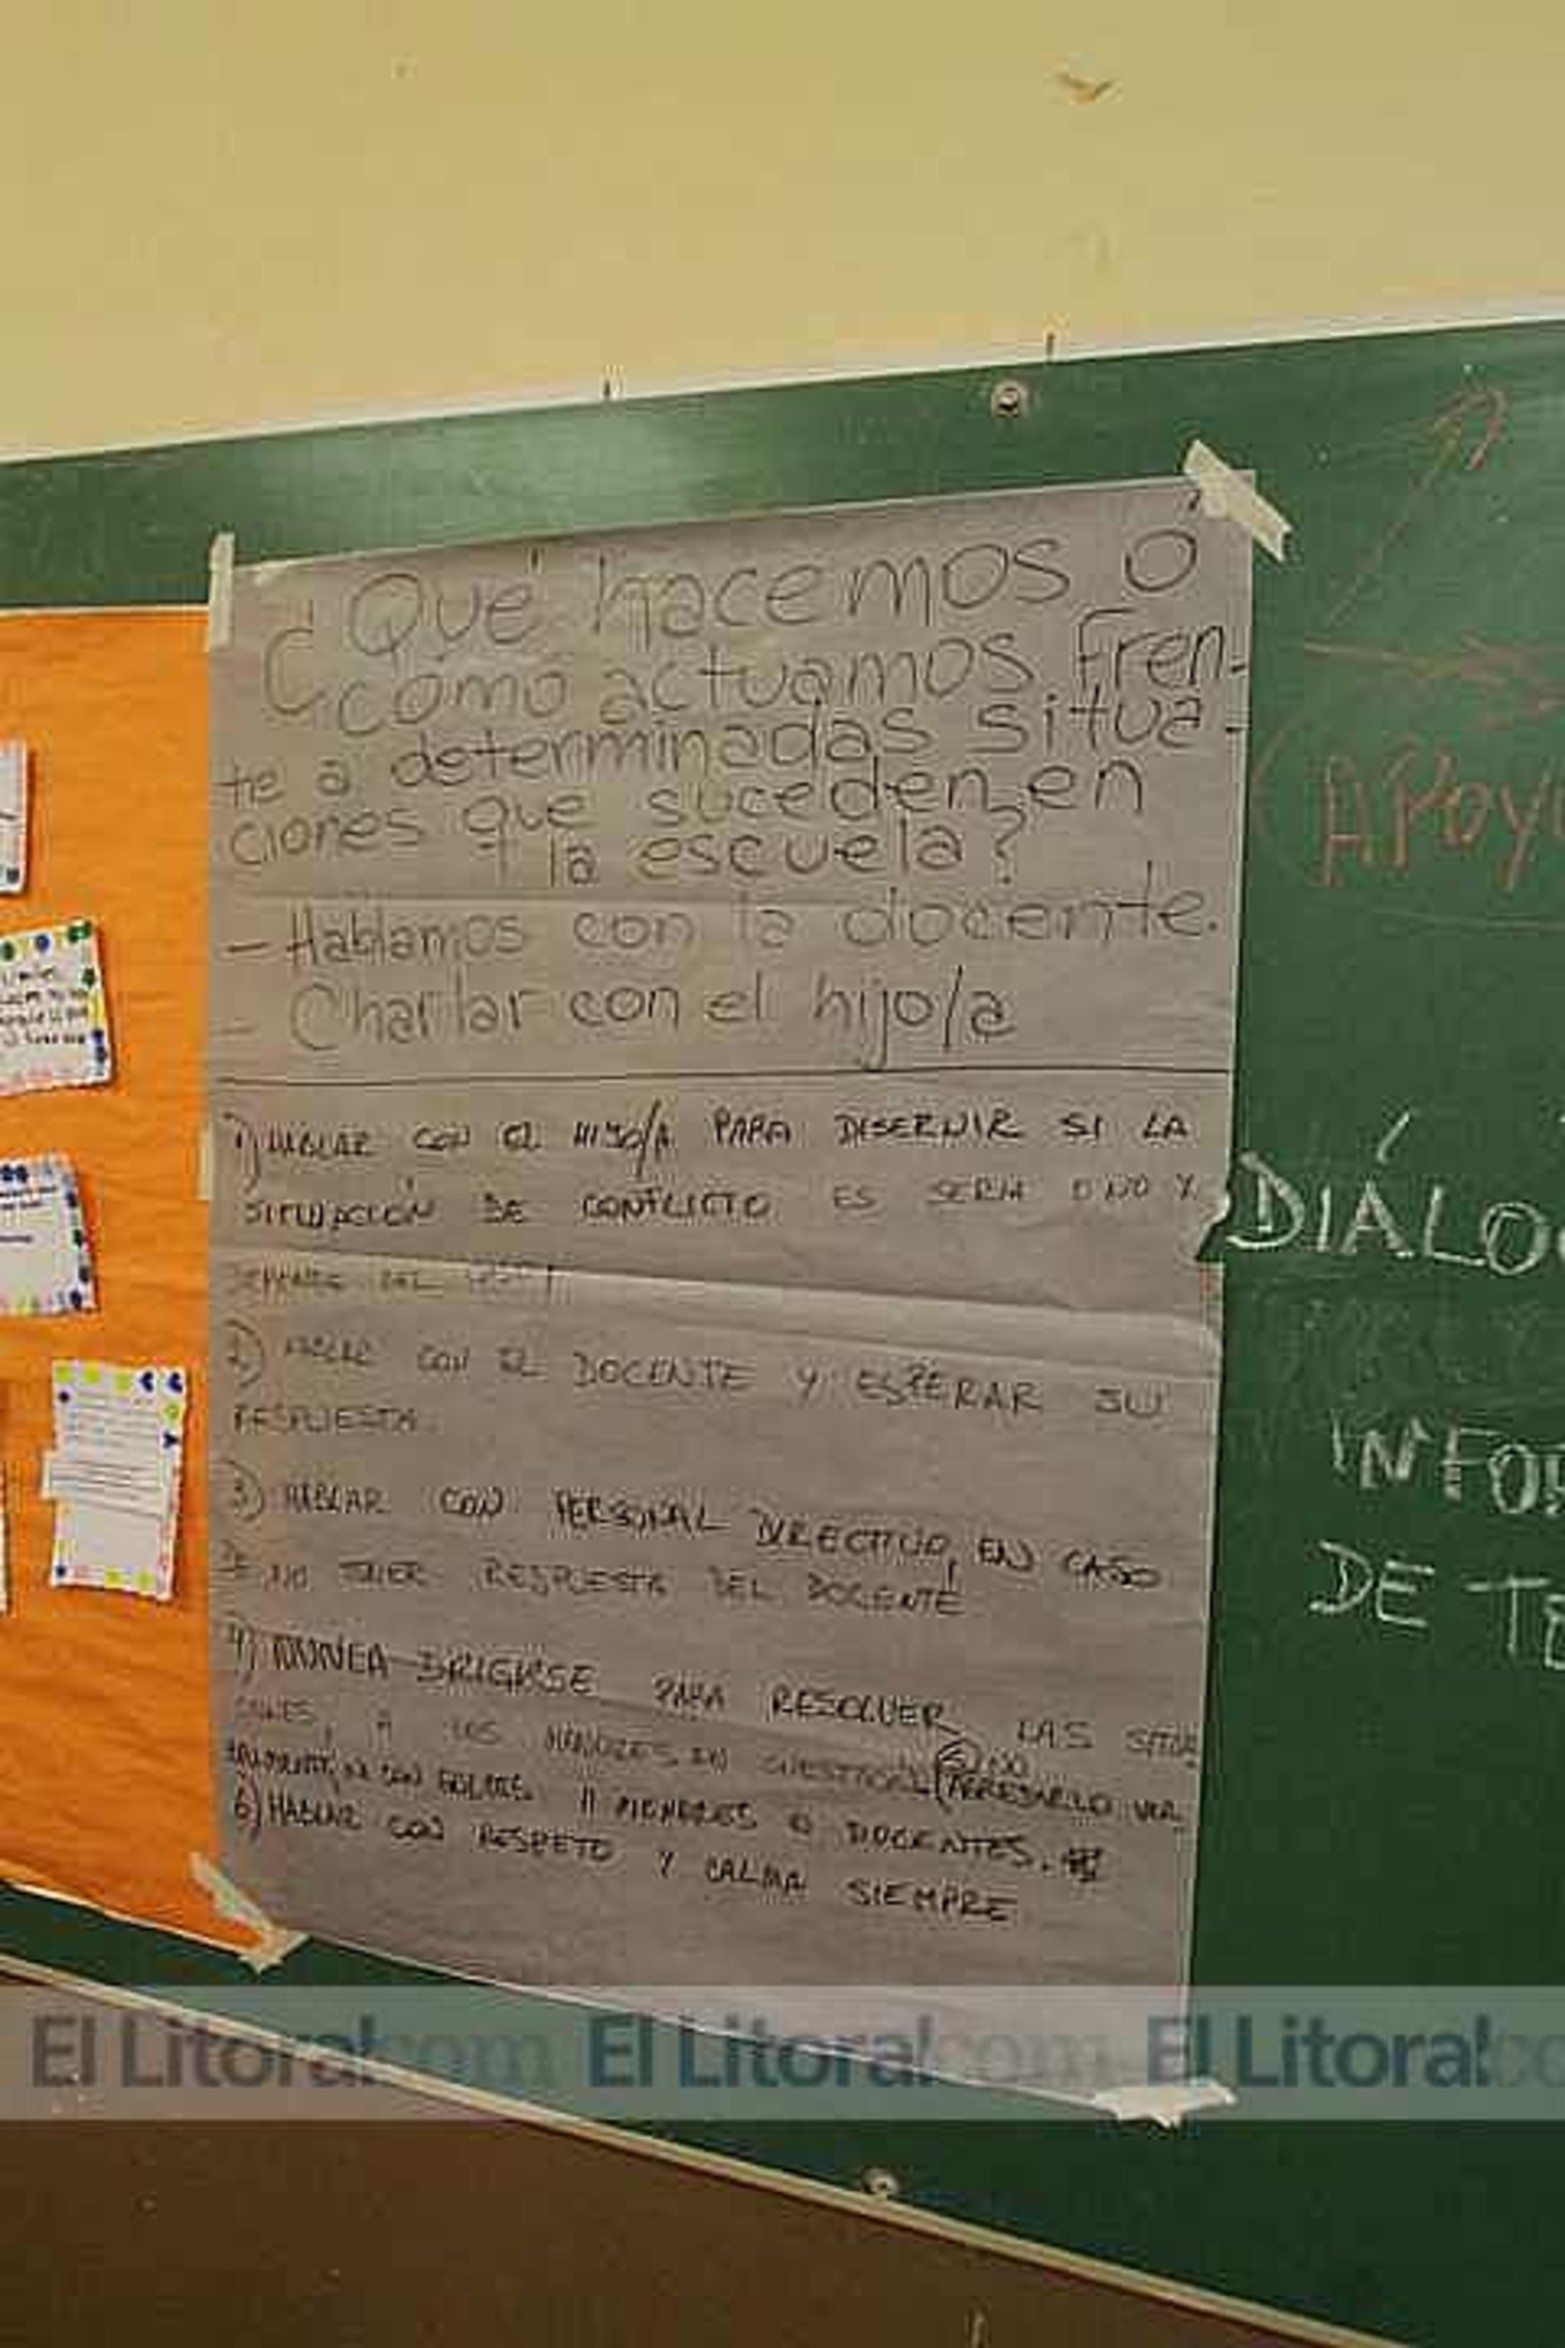 ¿Qué hacemos o
cómo actuamos fren-
te a determinadas situa-
ciones que suceden en
la escuela?
- Hablamos con la docente.
- Charlar con el hijo/a
1) HABLAR CON EL HIJO/A PARA DISERNIR SI LA
SITUACIÓN DE CONFLICTO ES SERIA O NO Y
DEL
2) HABLAR CON EL DOCENTE Y ESPERAR SU
RESPUESTA.
3) HABLAR CON PERSONAL DIRECTIVO, EN CASO
DE NO TENER RESPUESTA DEL DOCENTE
4) NUNCA DIRIGIRSE PARA RESOLVER LAS SITUA
CIONES, A LOS MENORES EN CUESTION.
5) NO
VER
NI CON GOLPES A MENORES O DOCENTES.
6) HABLAR CON RESPETO Y CALMA SIEMPRE
APOY
DIÁLO
INFO
DE
El Litoral.com El Litoral.com El Litoral.co